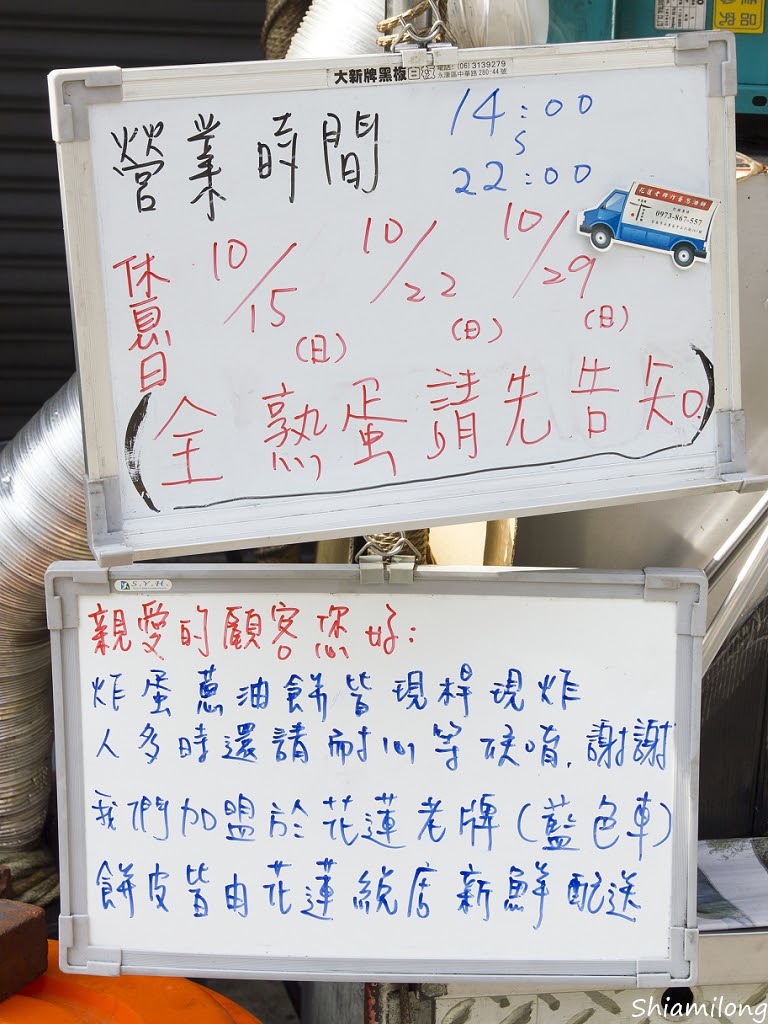 大新牌黑板白板 電話:(06)3139279
永康區中華路280-44號
營業時間
14:00
S
22:00
0973-867-557
休息日
10/15 10/22 10/29
(日) (日) (日)
(全熟蛋請先告知.)
S.Y.H.
親愛的顧客您好:
炸蛋蔥油餅皆現桿現炸
人多時還請耐心等候唷,謝謝
我們加盟於花蓮老牌(藍色車)
餅皮皆由花蓮總店新鮮配送
Shiamilong